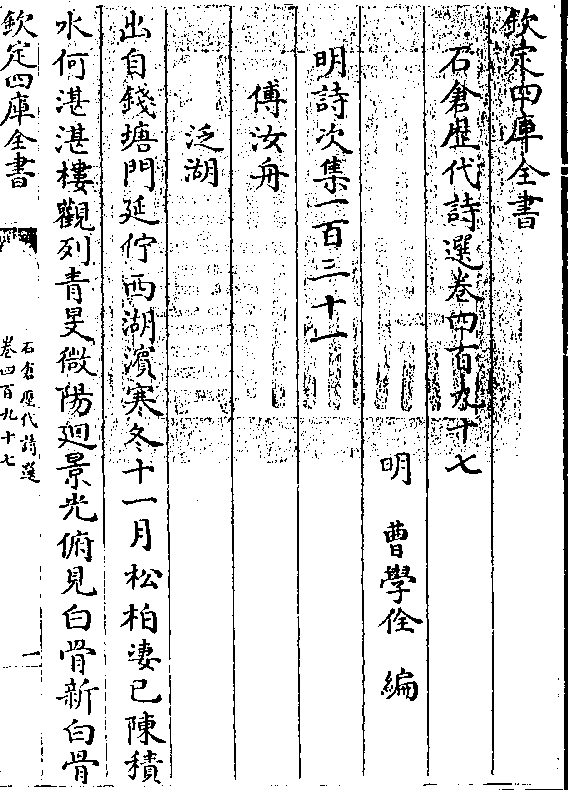 欽定四庫全書
石倉歴代詩選卷四百九十七
明 曹學佺 編
明詩次集一百三十一
傅汝舟
泛湖
出自錢塘門延佇西湖濵寒冬十一月松柏凄已陳積
水何湛湛樓觀列青旻微陽廻景光俯見白骨新白骨
欽定四庫全書
石倉歴代詩選
卷四百九十七
一